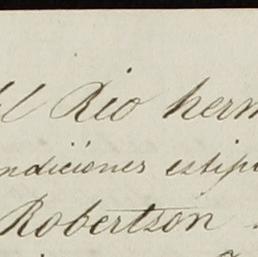 del Rio herm
ndiciones estip
Robertson